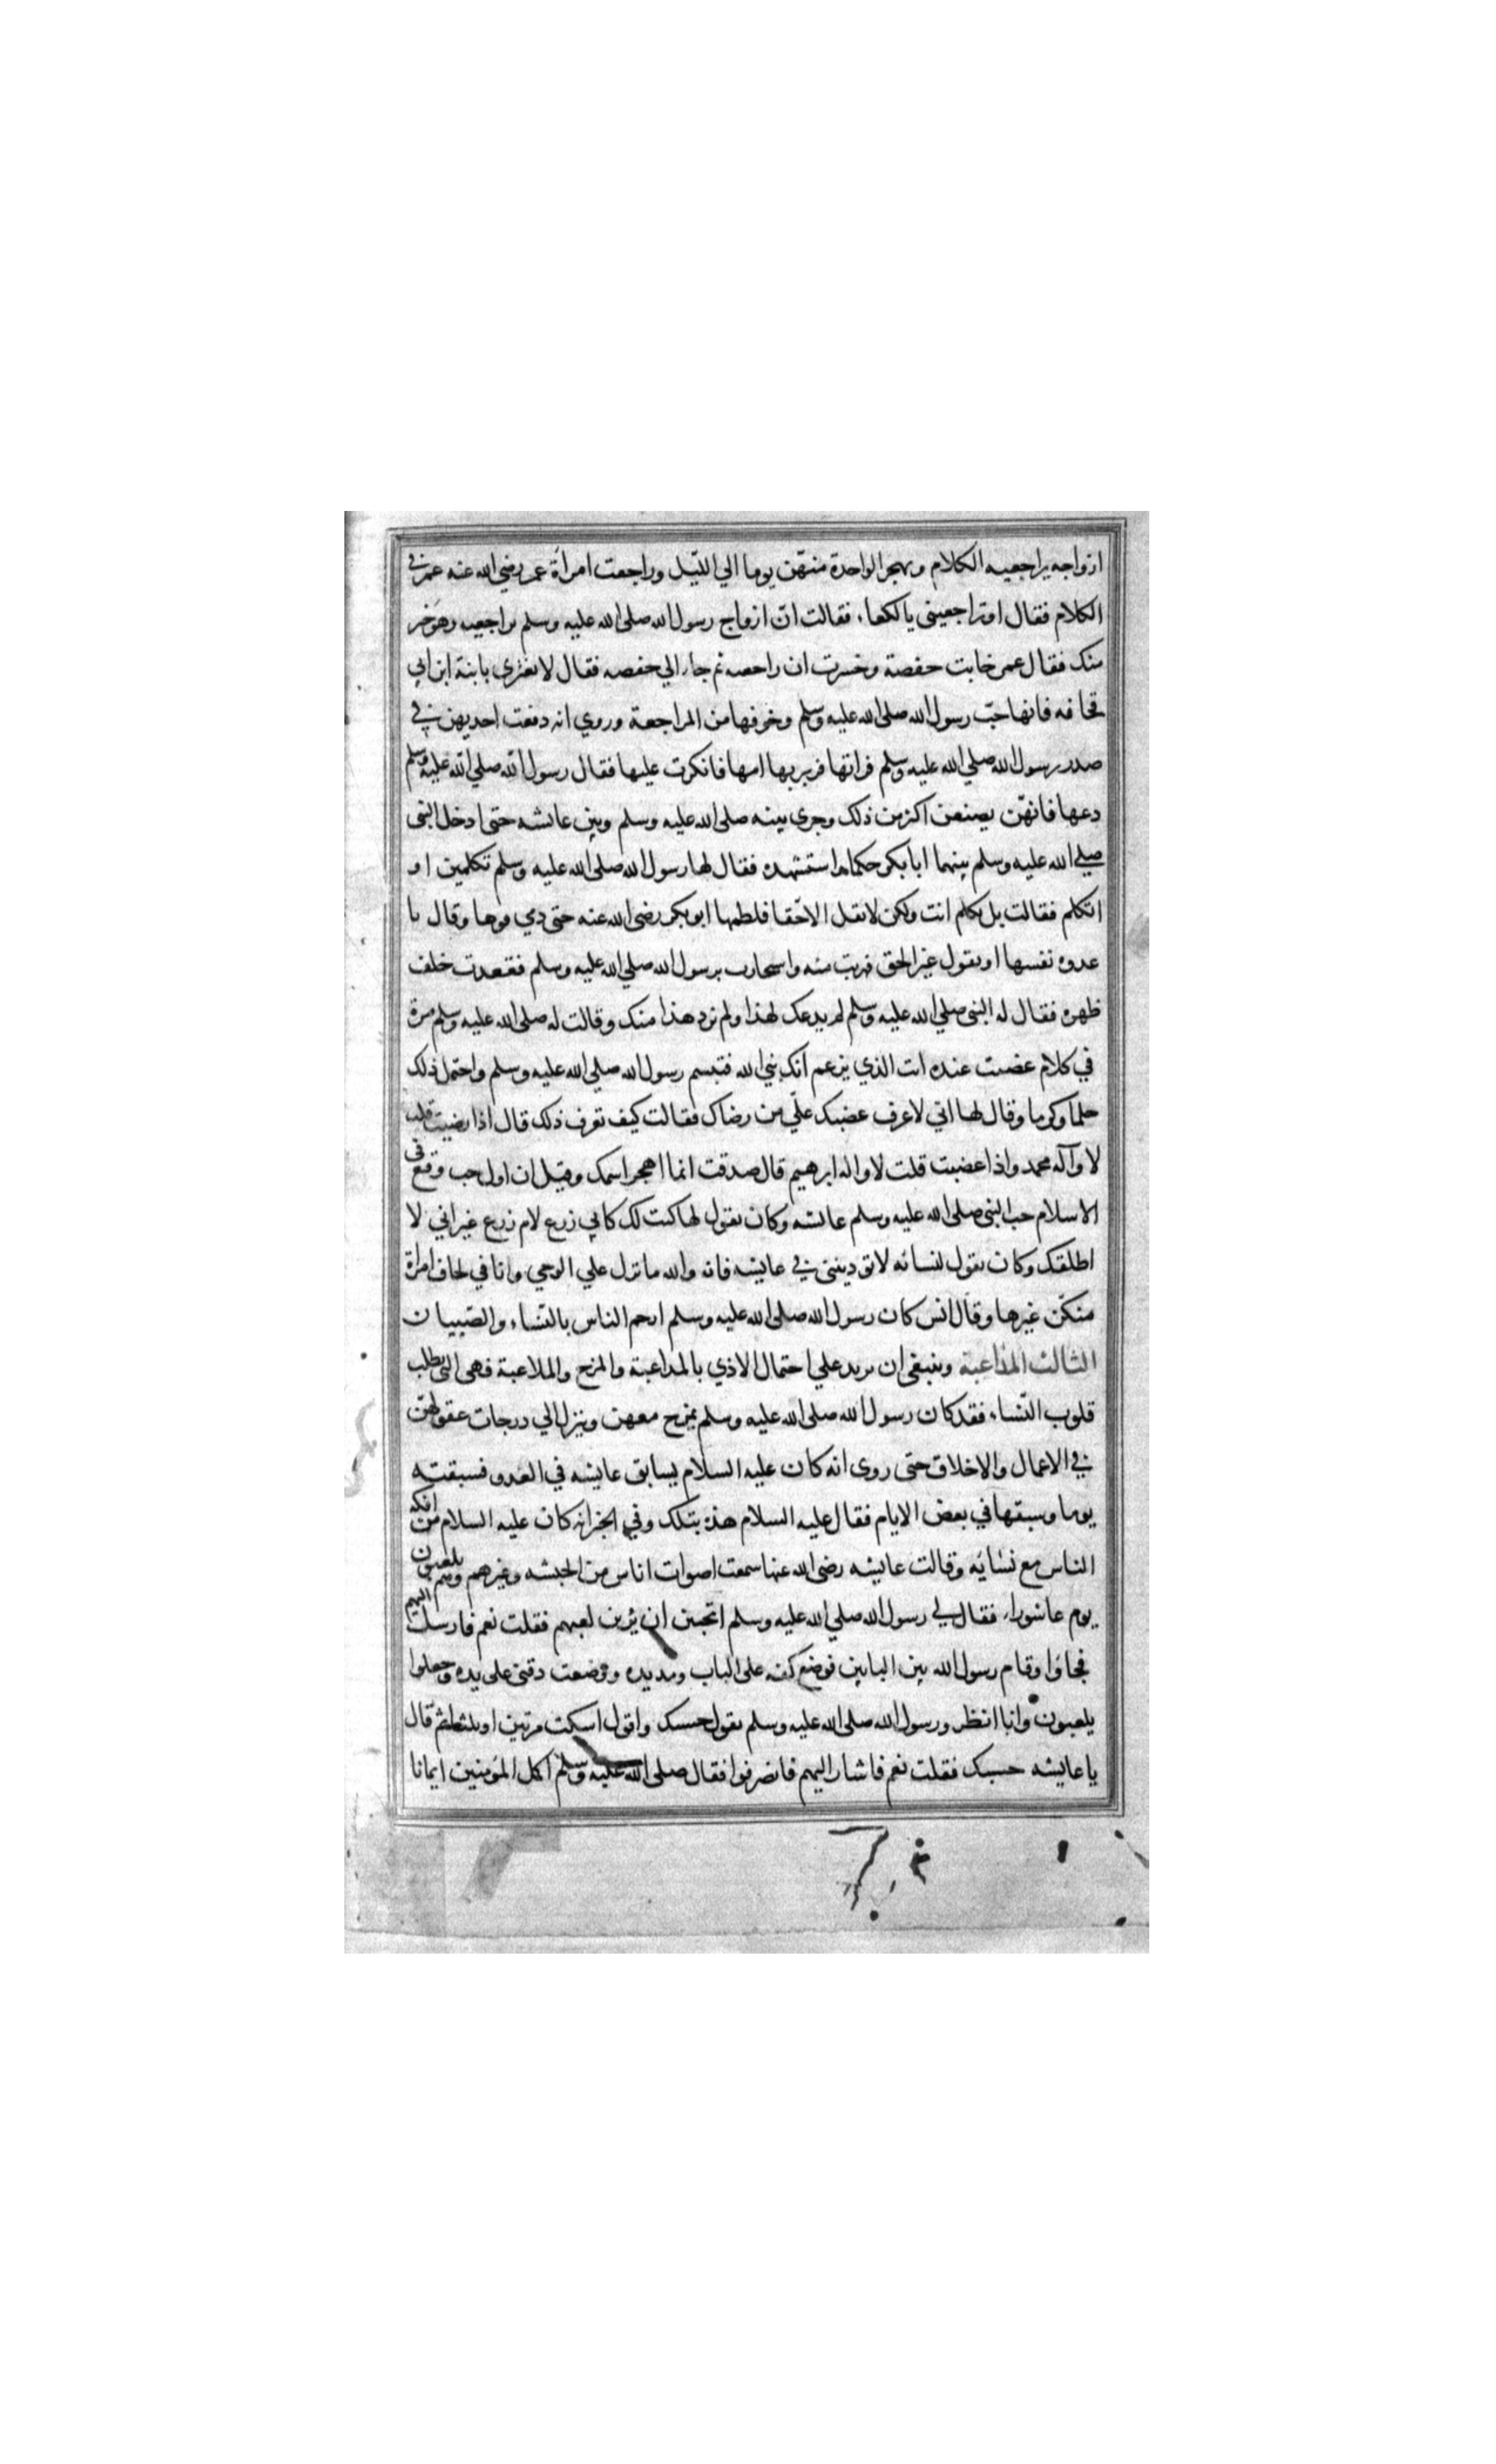 ازواجه يراجعنه الكلام وتهجر الواحدة منهن يوما الي الليل وراجعت امرأة عمر رضي الله عنه عمر في
الكلام فقال اوتراجعيني يا لكعاء فقالت ان ازواج رسول الله صلى الله عليه وسلم يراجعنه وهو خير
منك فقال عمر خابت حفصة وخسرت ان راجعته ثم جاء الي حفصه فقال لا تغتري بابنة ابن ابي
قحافه فانها حب رسول الله صلى الله عليه وسلم وخوفها من المراجعة وروي انه دفعت احديهن في
صدر رسول الله صلي الله عليه وسلم فزبرتها امها فانكرت عليها فقال رسول الله صلي الله عليه وسلم
دعها فانهن يصنعن اكثر من ذلك وجرى بينه صلى الله عليه وسلم وبين عائشه حتى ادخل النبى
صلى الله عليه وسلم بينهما ابا بكر حكما واستشهده فقال لها رسول الله صلى الله عليه وسلم تكلمين او
اتكلم فقالت بل تكلم انت ولكن لا تقل الا حقا فلطمها ابو بكر رضى الله عنه حتى دمي فوها وقال يا
عدوة نفسها او يقول غير الحق فهربت منه واستجارت برسول الله صلي الله عليه وسلم فقعدت خلف
ظهره فقال له النبى صلي الله عليه وسلم لم ندعك لهذا ولم نرد هذا منك وقالت له صلى الله عليه وسلم مرة
في كلام غضبت عنده انت الذي يزعم انك نبي الله فتبسم رسول الله صلي الله عليه وسلم واحتمل ذلك
حلما وكرما وقال لها اني لاعرف غضبك علّي من رضاك فقالت كيف تعرف ذلك قال اذا رضيت قلت
لا وآله محمد واذا غضبت قلت لا واله ابرهيم قال صدقت انما اهجر اسمك وقيل ان اول حب وقع في
الاسلام حب النبى صلى الله عليه وسلم عائشه وكان يقول لها كنت لك كابي زرع لام زرع غير اني لا
اطلقك وكان يقول لنسائه لا تؤدينني في عايشه فانه والله ما نزل علي الوحي وانا في لحاف امراة
منكن غيرها وقال انس كان رسول الله صلى الله عليه وسلم ارحم الناس بالنساء والصبيان
الثالث المداعبة وينبغى ان يزيد علي احتمال الاذي بالمداعبة والمزح والملاعبة فهى التى تطلب
قلوب النساء فقد كان رسول الله صلى الله عليه وسلم يمزح معهن وينزل الي درجات عقولهن
في الاعمال والاخلاق حتى روى انه كان عليه السلام يسابق عايشه في العدو فسبقته
يوما وسبقها في بعض الايام فقال عليه السلام هذه بتلك وفي الخبر انه كان عليه السلام من افكه
الناس مع نسائه وقالت عايشه رضى الله عنها سمعت اصوات اناس من الحبشه وغيرهم وهم يلعبون
يوم عاشوراء فقال لي رسول الله صلي الله عليه وسلم اتحبين ان ترين لعبهم فقلت نعم فارسل اليهم
فجاؤا وقام رسول الله بين البابين فوضع كفه على الباب ومد يده ووضعت دقنى على يده وجعلوا
يلعبون وانا انظر ورسول الله صلى الله عليه وسلم يقول حسبك واقول اسكت مرتين او ثلثا ثم قال
يا عايشه حسبك فقلت نعم فاشار اليهم فانصرفوا فقال صلى الله عليه وسلم اكمل المؤمنين ايمانا